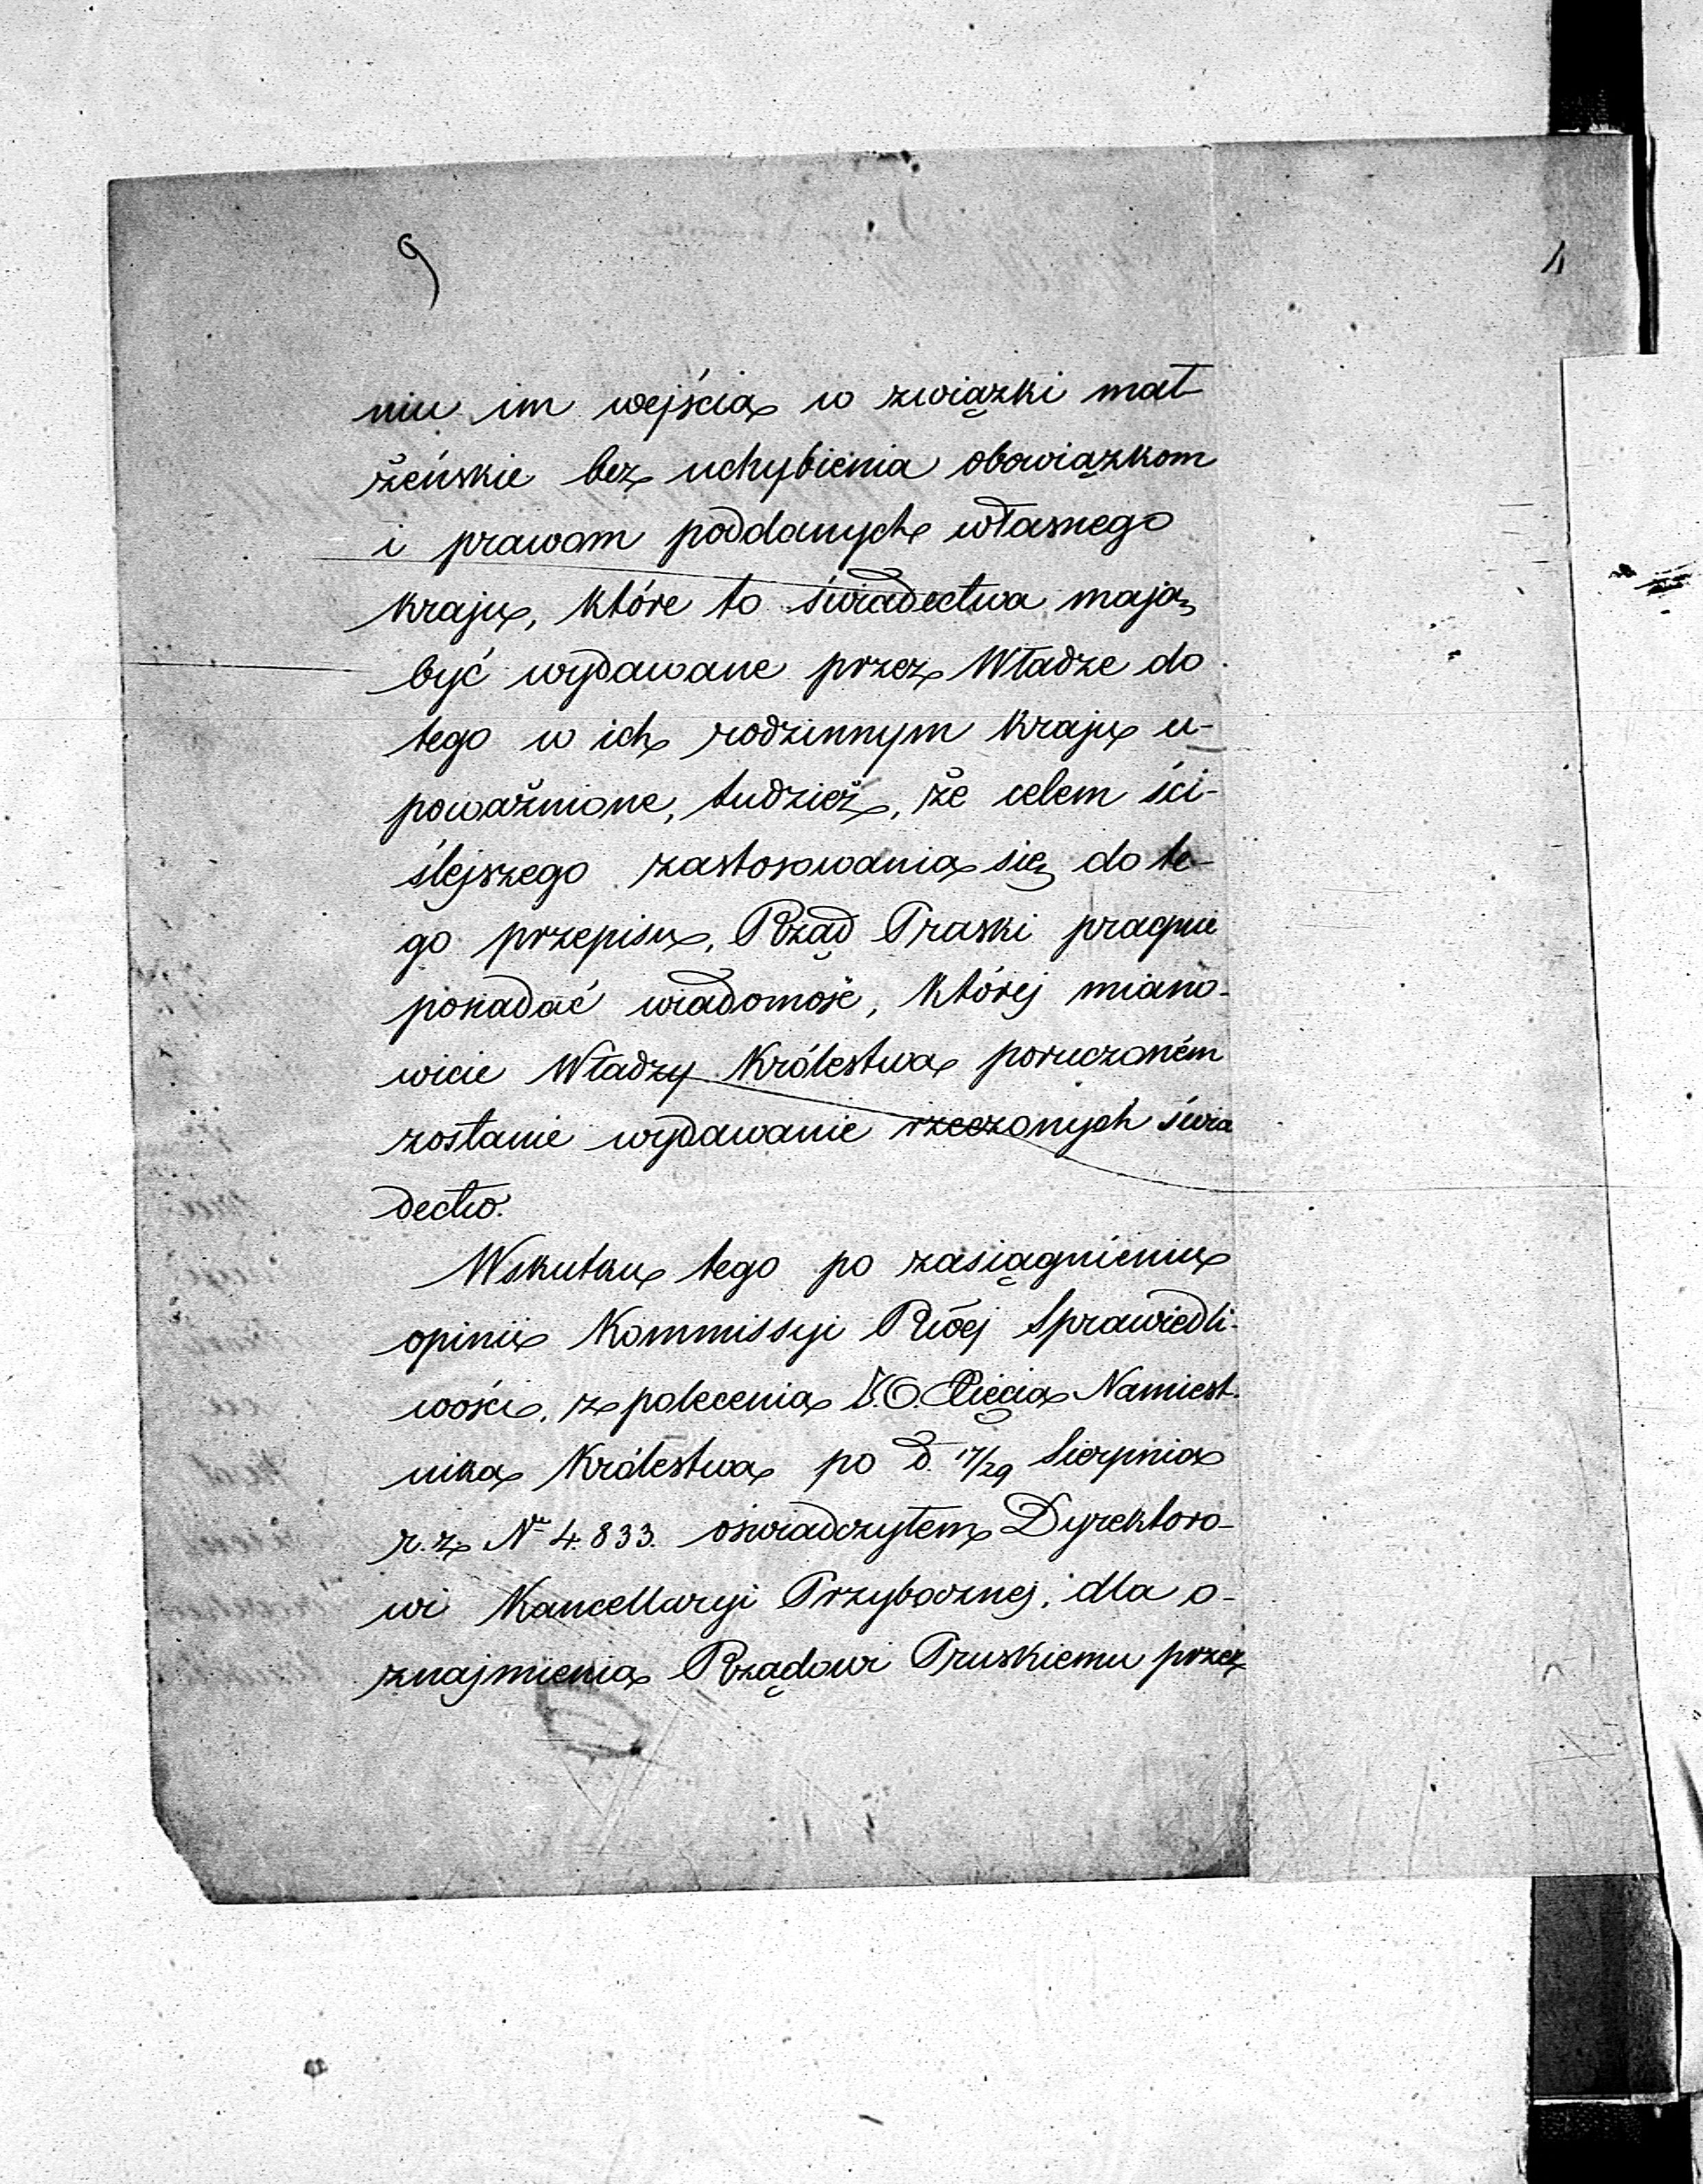 9
niu im wejścia w związki mał-
żeńskie bez uchybienia obowiązkom
i prawom poddanych własnego
kraju, które to świadectwa mają
być wydawane przez Władze do
tego w ich rodzinnym kraju u-
poważnione, tudzież, że celem ści-
ślejszego zastosowania się do te-
go przepisu, Rząd Pruski pragnie
posiadać wiadomość, której miano-
wicie Władzy Królestwa poruczoném
zostanie wydawanie rzeczonych świa
dectw.
Wskutku tego po zasiągnieniu
opinii Kommissyi Rwéj Sprawiedli-
wości, z polecenia J.O. Xięcia Namiest-
nika Królestwa po d. 17/29 Sierpnia
r. z. No 4.833. oświadczyłem Dyrektoro-
wi Kancellaryi Przybocznej, dla o-
znajmienia Rządowi Pruskiemu przez